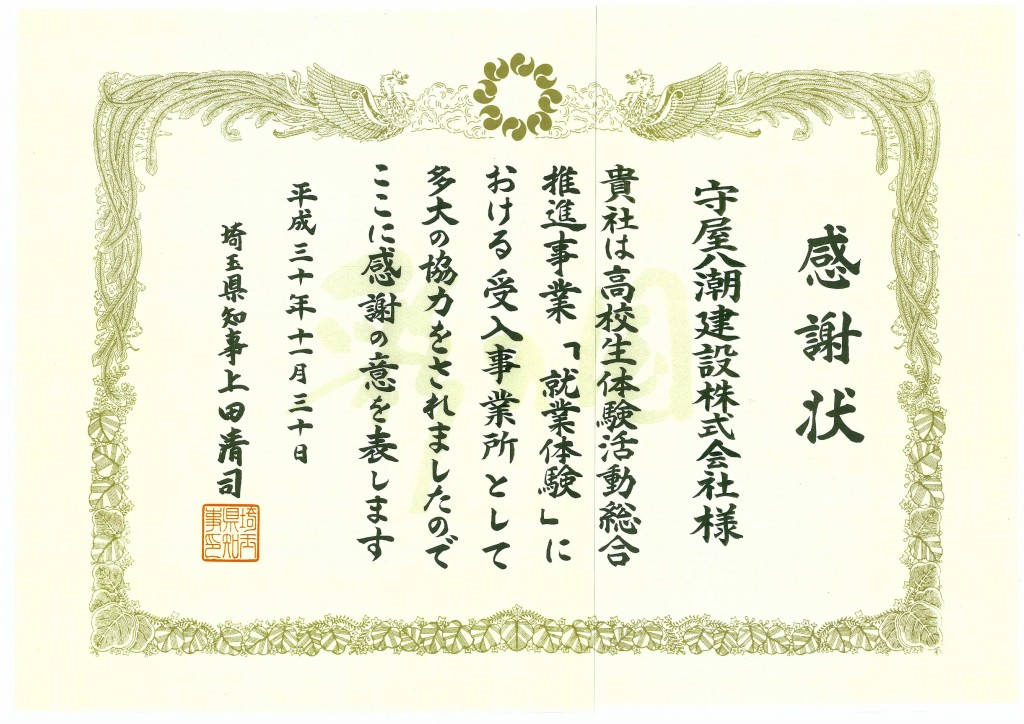 感謝状
守屋八潮建設株式会社様
貴社は高校生体験活動総合
推進事業「就業体験」に
おける受入事業所として
多大の協力をされましたので
ここに感謝の意を表します
平成三十年十一月三十日
埼玉県知事上田清司
埼玉
県知
事印